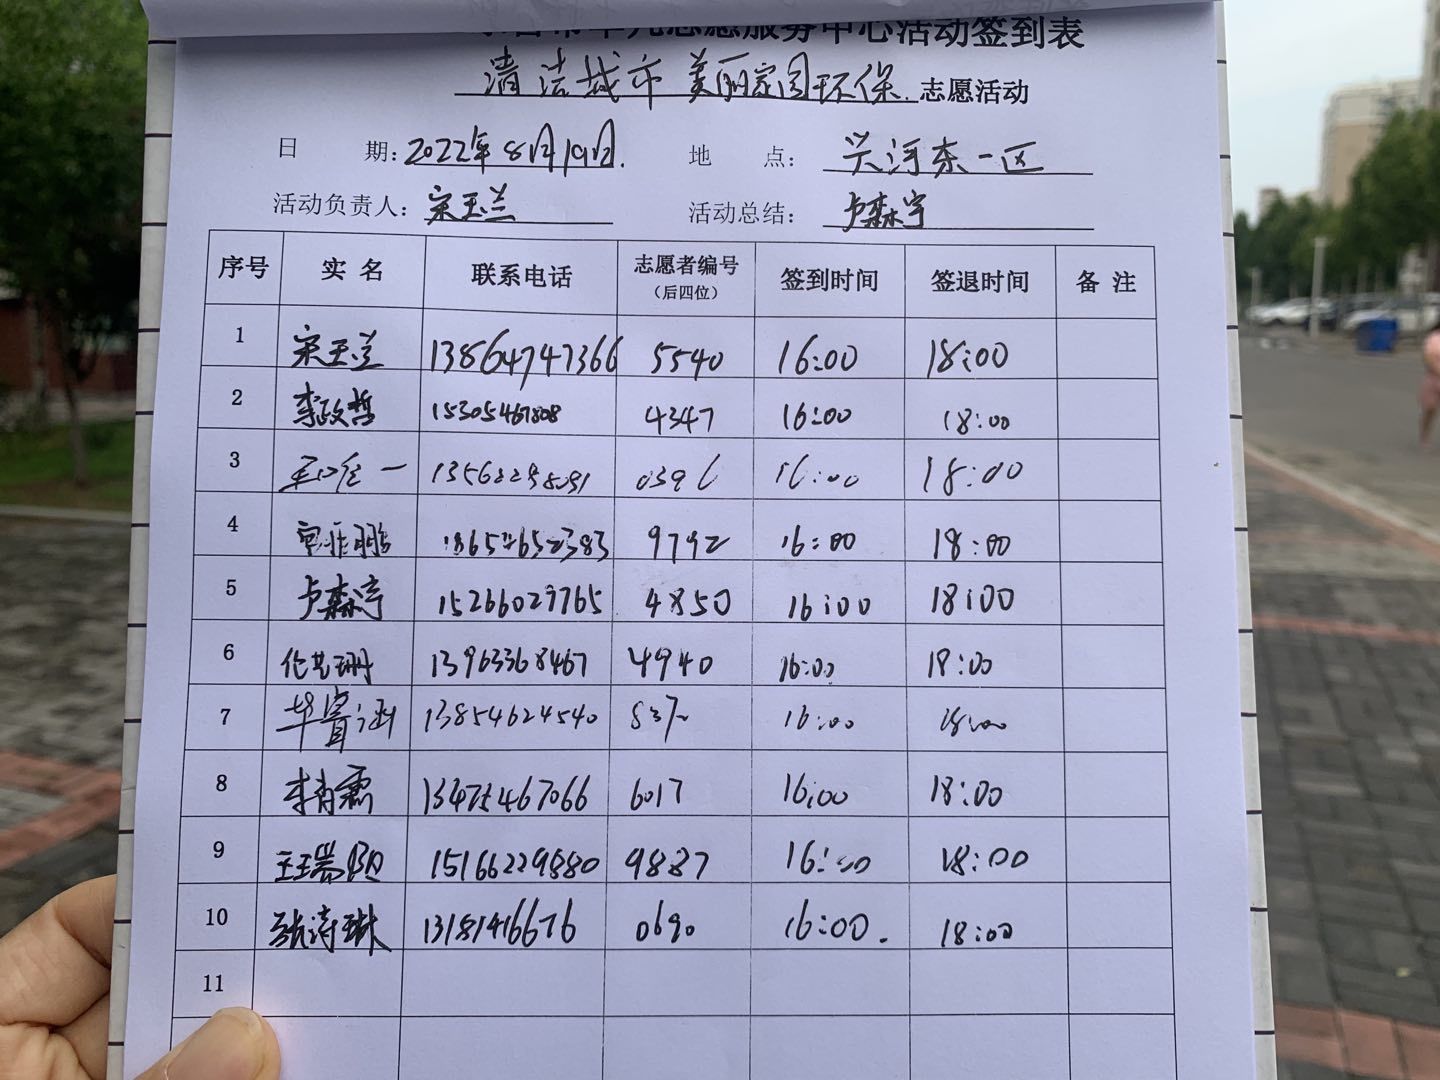 志愿服务中心活动签到表
清洁城市 美丽家园环保 志愿活动
日 期：2022年8月19日. 地 点：兴河东一区
活动负责人：宋玉兰 活动总结：卢森宇
序号 实名 联系电话 志愿者编号（后四位） 签到时间 签退时间 备注
1 宋玉兰 13864747366 5540 16:00 18:00
2 李政哲 15305467808 4347 16:00 18:00
3 0396 16:00 18:00
4 9792 16:00 18:00
5 卢森宇 15266027765 4850 16:00 18:00
6 13963368467 4940 16:00 18:00
7 华睿涵 13854624540 16:00 18:00
8 李肖霖 13475467066 6017 16:00 18:00
9 王瑞阳 15166229880 9887 16:00 18:00
10 张诗琳 13181416676 0690 16:00. 18:00
11